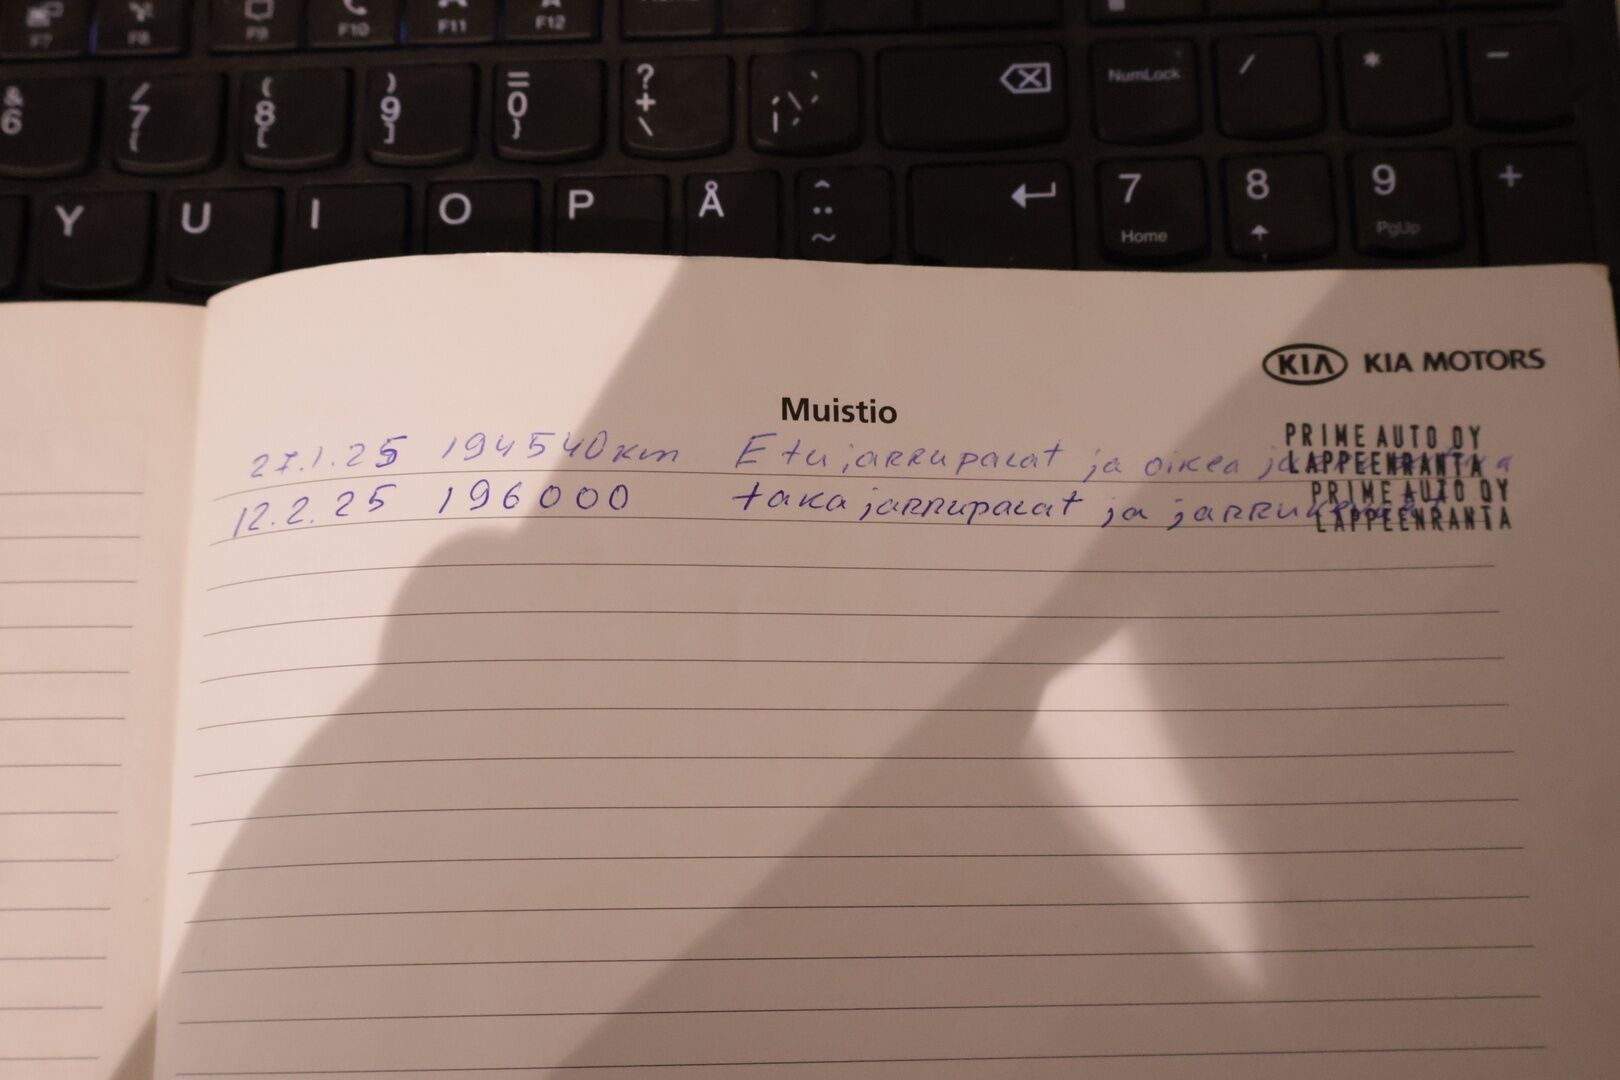 F7 F8 F9 F10 F11 F12
& 6 / 7 { ( 8 [ ) 9 ] = 0 } ? + \ NumLock / * -
Y U I O P Å ^ ¨ ~ 7 Home 8 9 PgUp +
KIA KIA MOTORS
Muistio
27.1.25 194540km Etujarrupalat ja oikea
PRIME AUTO OY
LAPPEENRANTA
12.2.25 196000 takajarrupalat ja
PRIME AUTO OY
LAPPEENRANTA